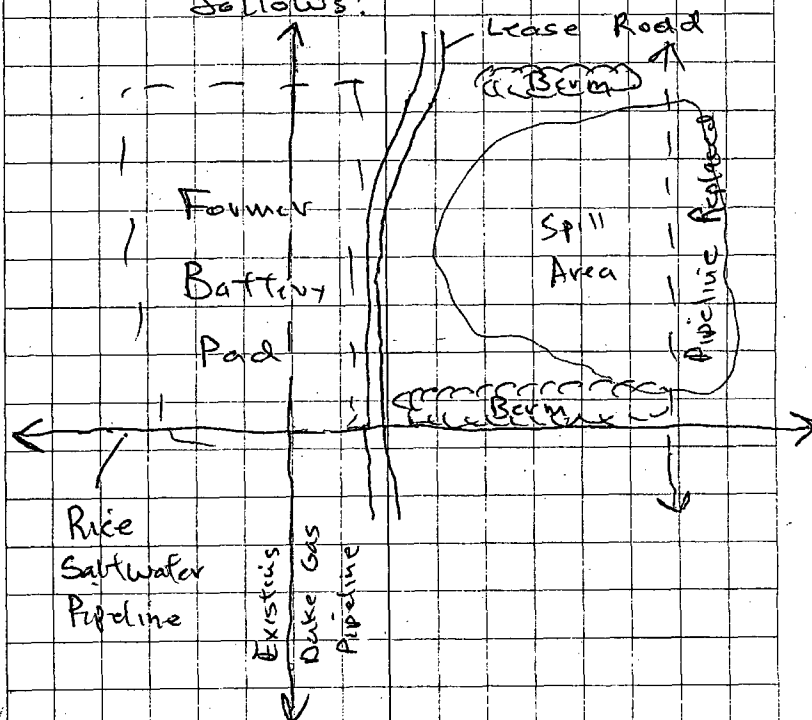 follows:
Lease Road
Berm
Former
Battery
Pad
Spill
Area
Pipeline Replaced
Berm
Rice
Saltwater
Pipeline
Existing
Duke Gas
Pipeline